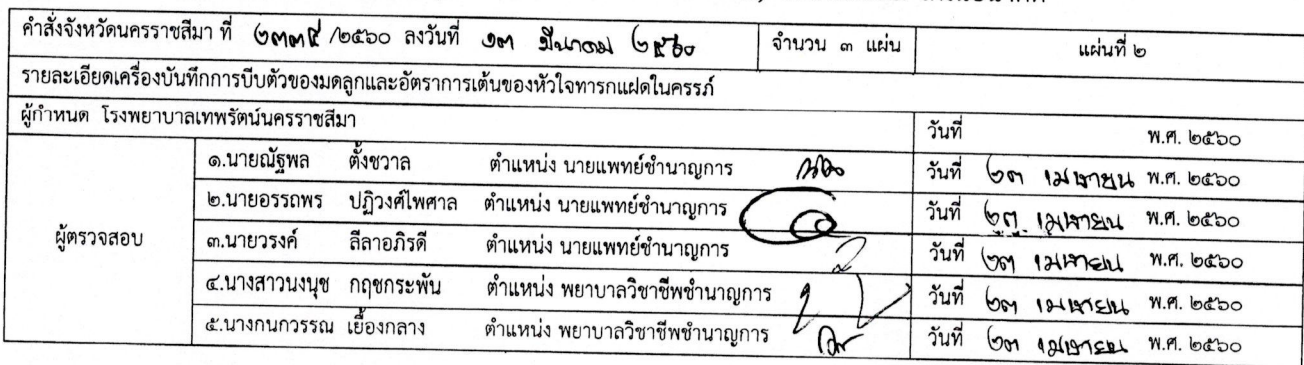 คำสั่งจังหวัดนครราชสีมา ที่ ๒๓๓๙ /๒๕๖๐ ลงวันที่ ๑๓ มีนาคม ๒๕๖๐ จำนวน ๓ แผ่น แผ่นที่ ๒
รายละเอียดเครื่องบันทึกการบีบตัวของมดลูกและอัตราการเต้นของหัวใจทารกแฝดในครรภ์
ผู้กำหนด โรงพยาบาลเทพรัตน์นครราชสีมา วันที่ พ.ศ. ๒๕๖๐
ผู้ตรวจสอบ
๑.นายณัฐพล ตั้งชวาล ตำแหน่ง นายแพทย์ชำนาญการ วันที่ ๒๓ เมษายน พ.ศ. ๒๕๖๐
๒.นายอรรถพร ปฏิวงศ์ไพศาล ตำแหน่ง นายแพทย์ชำนาญการ วันที่ ๒๓ เมษายน พ.ศ. ๒๕๖๐
๓.นายวรงค์ ลีลาอภิรดี ตำแหน่ง นายแพทย์ชำนาญการ วันที่ ๒๓ เมษายน พ.ศ. ๒๕๖๐
๔.นางสาวนงนุช กฤชกระพัน ตำแหน่ง พยาบาลวิชาชีพชำนาญการ วันที่ ๒๓ เมษายน พ.ศ. ๒๕๖๐
๕.นางกนกวรรณ เยื้องกลาง ตำแหน่ง พยาบาลวิชาชีพชำนาญการ วันที่ ๒๓ เมษายน พ.ศ. ๒๕๖๐